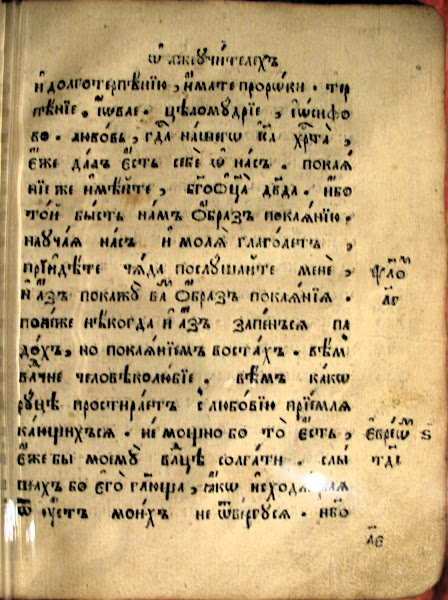 Ѡ лжеꙋчи́телехъ
и҆ долготерпѣ́нїю, и҆́мате проро́ки · тер
пѣ́нїе, і҆́ѡвле · цѣломꙋ́дрїе, і҆ѡ́сифо
во · любо́вь, гдⷭ҇а на́шегѡ і҆с҃а хрⷭ҇та̀,
є҆́же да́лъ є҆́сть себѐ ѡ҆ на́съ · покаѧ́
нїе же и҆мѣ́йте, бг҃оѻц҃а̀ дв҃да · и҆́бо
то́й бы́сть на́мъ ѻ҆́бразъ покаѧ́нїю ·
наꙋча́ѧ на́съ и҆ молѧ̀ глаго́летъ ,
прїидѣ́те ча́да послꙋ́шайте менѐ , ѱало́ⷨ
и҆ а҆́зъ покажꙋ̀ ва́ⷨ ѻ҆́бразъ покаѧ́нїѧ · л҃г
поне́же нѣ́когда и҆ а҆́зъ запе́нъсѧ па
до́хъ, но покаѧ́нїемъ воста́хъ · вѣ́мⸯ
влⷣчне человѣколю́бїе · вѣ́мъ ка́кѡ
рꙋ́цѣ простира́етъ с̾ любо́вїю прїе́млѧ
ка́ющихъсѧ · не мо́щно бо то̀ є҆́сть, є҆вре́ѡⷨ ѕ҃
є҆́же бы моемꙋ̀ влⷣцѣ солга́ти · слы́ тд҃і
шахъ бо є҆го̀ гл҃юща , ꙗ҆́кѡ и҆сходѧ́щаѧ
ѿ ᲂу҆́стъ мои́хъ не ѿве́ргꙋсѧ · и҆́бо
л҃е